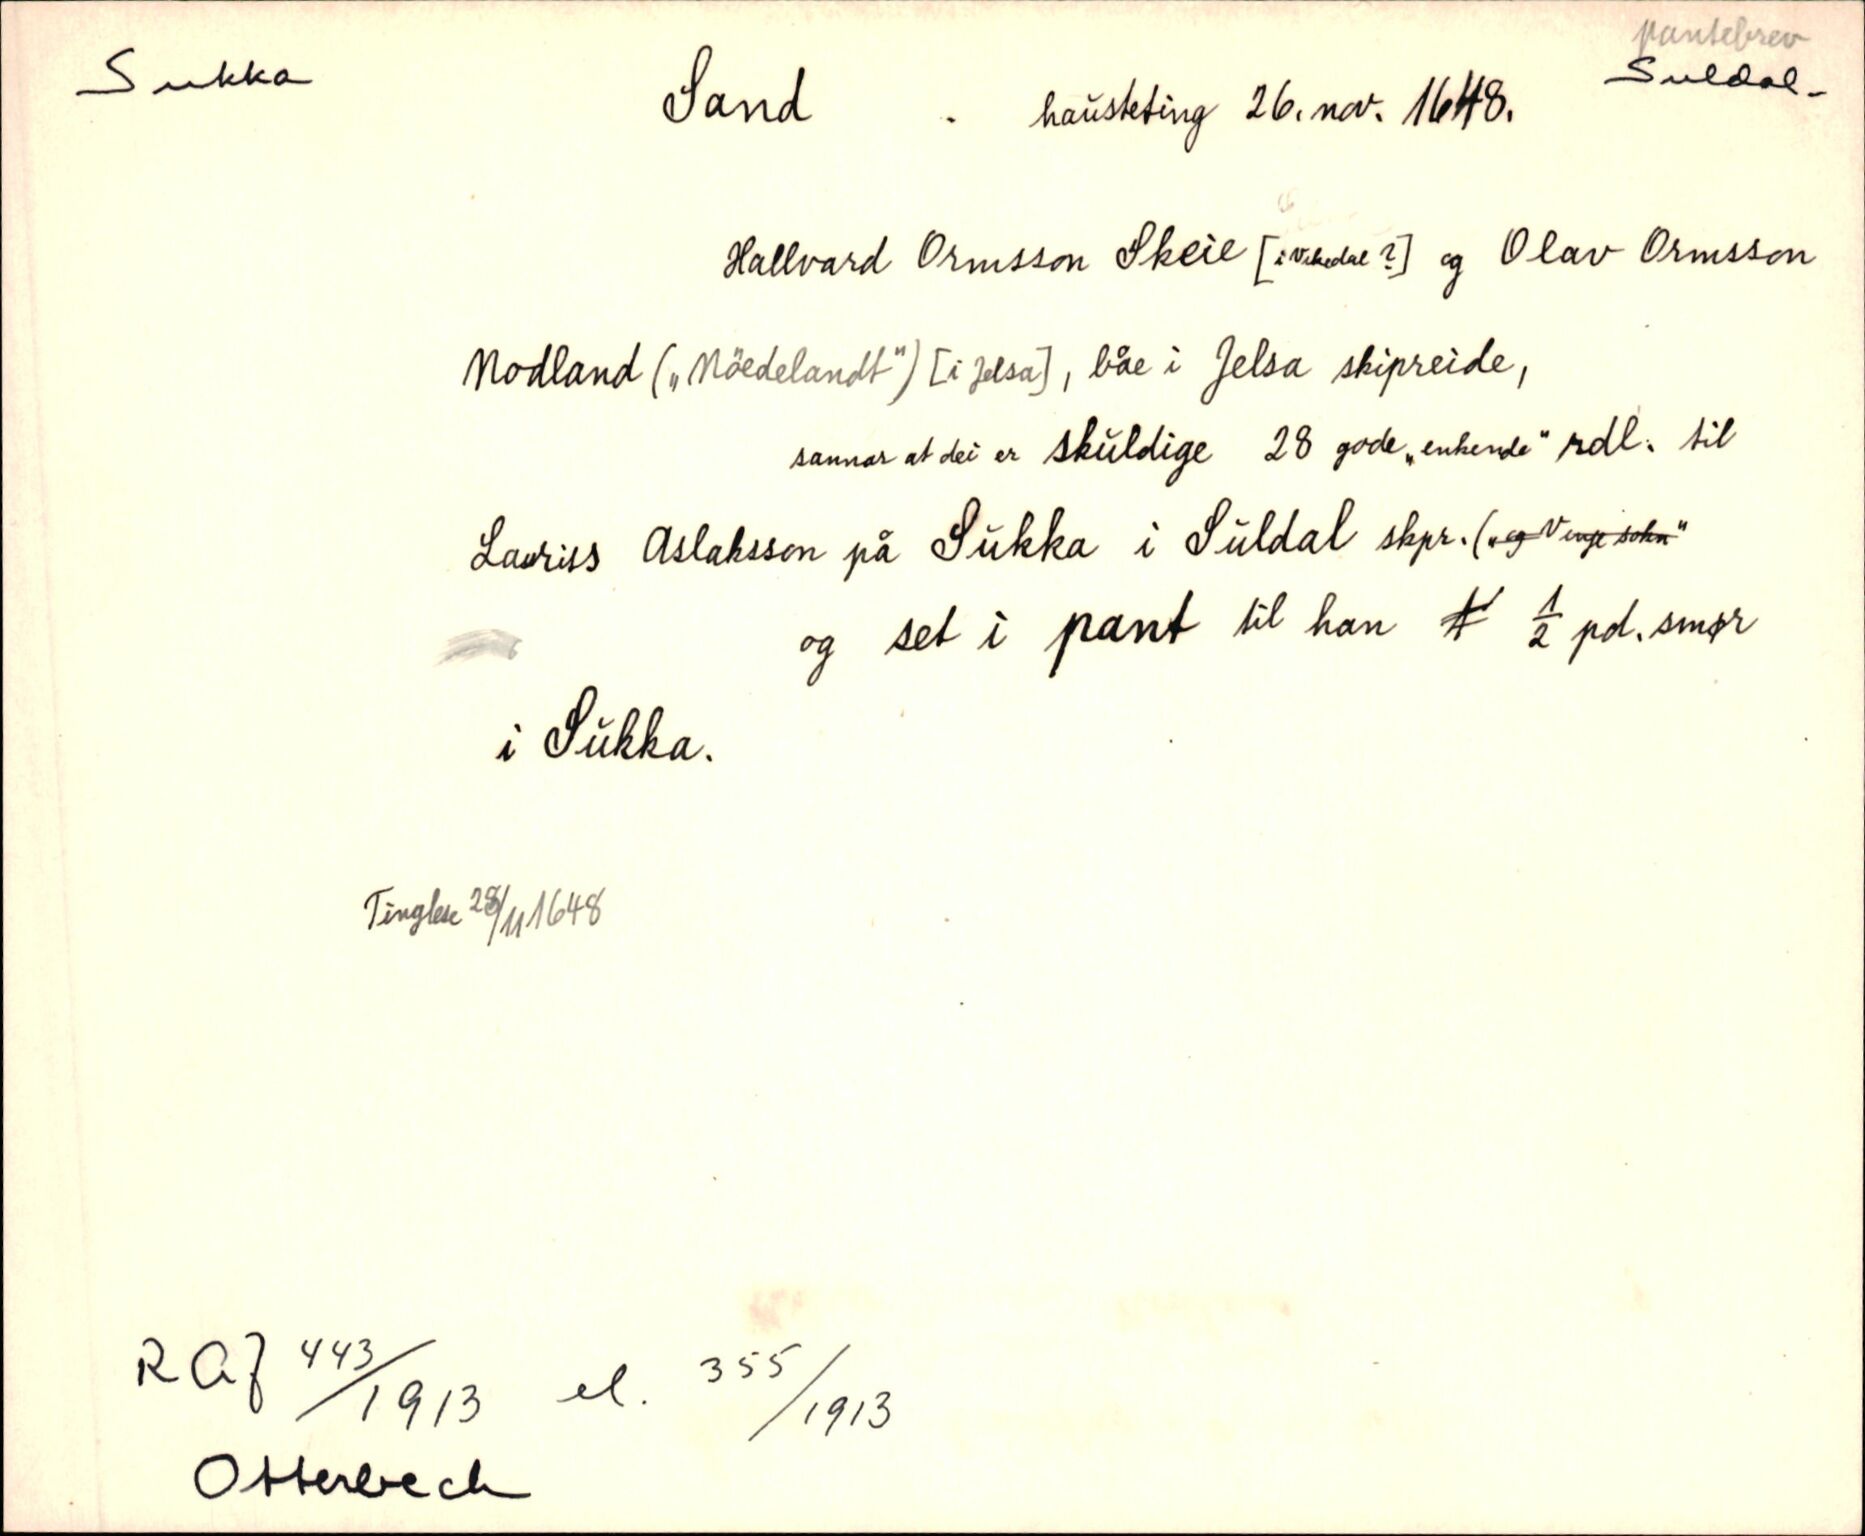 pantebrev
Sukka
Suldal-
Sand . hausteting 26. nov. 1648.
Hallvard Ormsson Skeie [i Vikedal ?] og Olav Ormsson
Nodland („Nöedelandt") [i Jelsa], båe i Jelsa skipreide,
sannar at dei er skuldige 28 gode „enkende" rdl. til
Lauriss Aslaksson på Sukka i Suldal skpr. („og Vinje sokn"
og set i pant til han ½ pd. smør
i Sukka.
Tinglese 28/11 1648
RAJ 443/1913 el. 355/1913
Otterbech